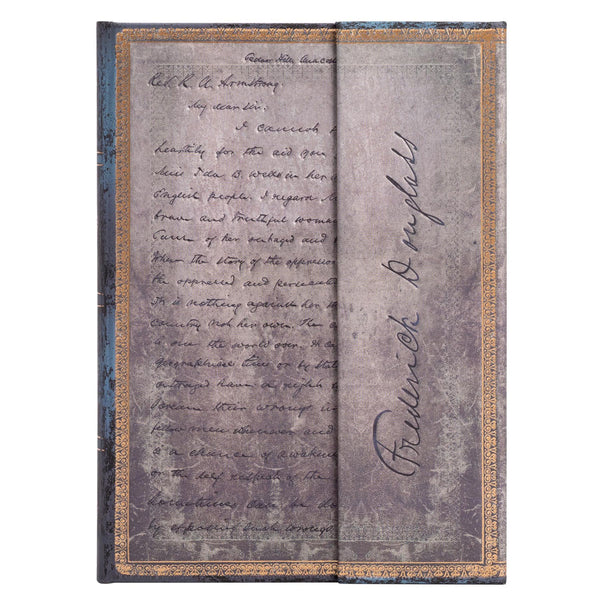 Cedar Hill Anacos
Rev. R. A. Armstrong.
My dear sir:
I cannot
heartily for the aid you
Miss Ida B. Wells in her
English people. I regard
brave and truthful woman
Cause of her outraged and
When the story of the oppression
the oppressed and persecute
It is nothing against her th
country not her own. The c
is one the world over. It ca
geographical line or by
outraged have a right
scream their wrongs in
fellow men wherever and
is a chance of awaken
or the self respect of the
Something can be do
by exposing such wrongs
Frederick Douglass